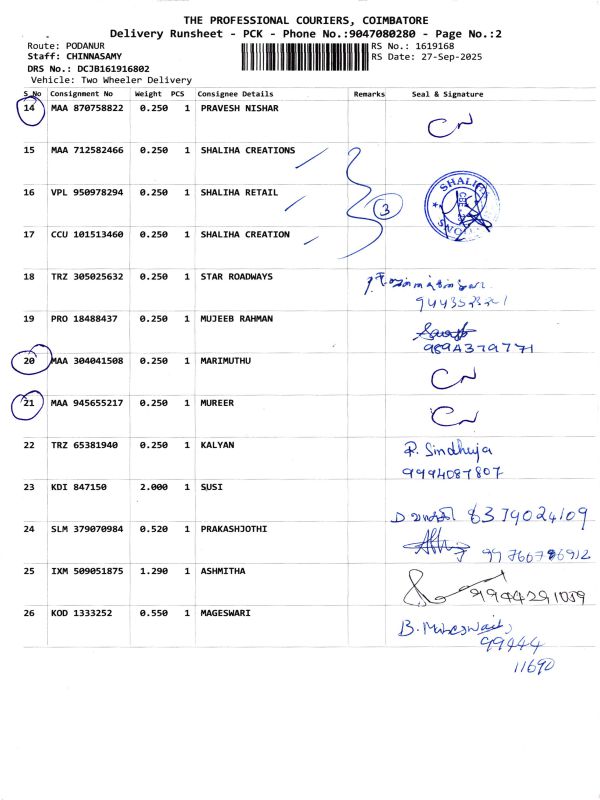 THE PROFESSIONAL COURIERS, COIMBATORE
Delivery Runsheet - PCK - Phone No.:9047080280 - Page No.:2
Route: PODANUR RS No.: 1619168
Staff: CHINNASAMY RS Date: 27-Sep-2025
DRS No.: DCJB161916802
Vehicle: Two Wheeler Delivery
S_No Consignment No Weight PCS Consignee Details Remarks Seal & Signature
14 MAA 870758822 0.250 1 PRAVESH NISHAR
15 MAA 712582466 0.250 1 SHALIHA CREATIONS
16 VPL 950978294 0.250 1 SHALIHA RETAIL 3 SHALIHA
17 CCU 101513460 0.250 1 SHALIHA CREATION
18 TRZ 305025632 0.250 1 STAR ROADWAYS
19 PRO 18488437 0.250 1 MUJEEB RAHMAN
9894379771
20 MAA 304041508 0.250 1 MARIMUTHU
21 MAA 945655217 0.250 1 MUREER
22 TRZ 65381940 0.250 1 KALYAN R. Sindhuja
9994087807
23 KDI 847150 2.000 1 SUSI
8379024109
24 SLM 379070984 0.520 1 PRAKASHJOTHI
25 IXM 509051875 1.290 1 ASHMITHA
9944291059
26 KOD 1333252 0.550 1 MAGESWARI B. Maheswari
99444
11690